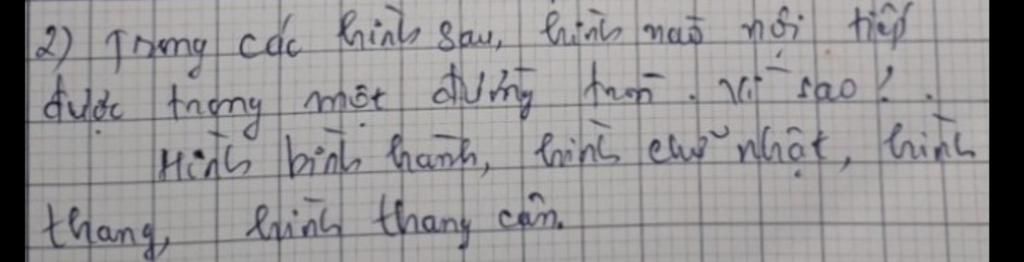 2) Trong các hình sau, hình nào nội tiếp
được trong một đường tròn. Vì sao?.
Hình bình hành, hình chữ nhật, hình
thang, hình thang cân.